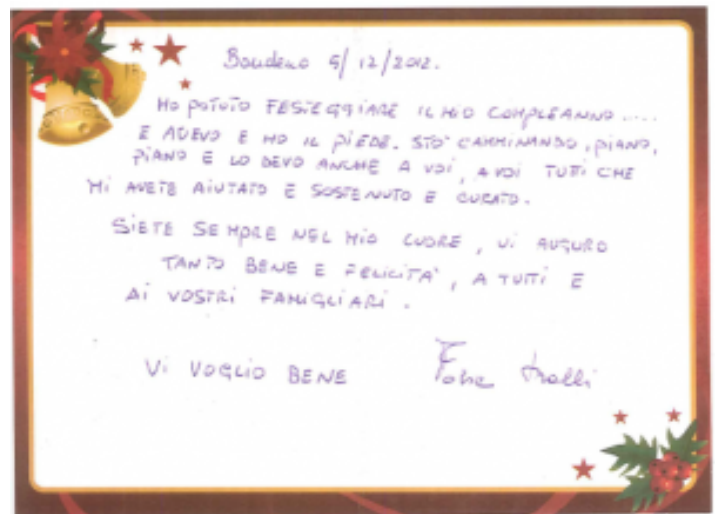 Bondeno 5/12/2012.
HO POTUTO FESTEGGIARE IL MIO COMPLEANNO.....
E AVEVO E HO IL PIEDE. STO' CAMMINANDO, PIANO,
PIANO E LO DEVO ANCHE A VOI, A VOI TUTTI CHE
MI AVETE AIUTATO E SOSTENUTO E CURATO.
SIETE SEMPRE NEL MIO CUORE, VI AUGURO
TANTO BENE E FELICITA', A TUTTI E
AI VOSTRI FAMIGLIARI.
VI VOGLIO BENE